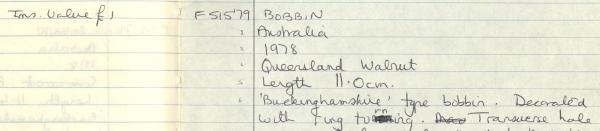 Ins. Value £1 F515'79 BOBBIN
2 Australia
3 1978
4 Queensland Walnut
5 Length 11.0cm.
6 'Buckinghamshire' type bobbin. Decorated
with ring turning. Transverse hole